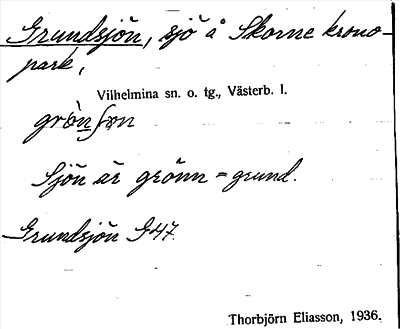 Grundsjön, sjö å Skorne krono-
park,
Vilhelmina sn. o. tg., Västerb. l.
Sjön är grönn = grund.
Grundsjön G47.
Thorbjörn Eliasson, 1936.